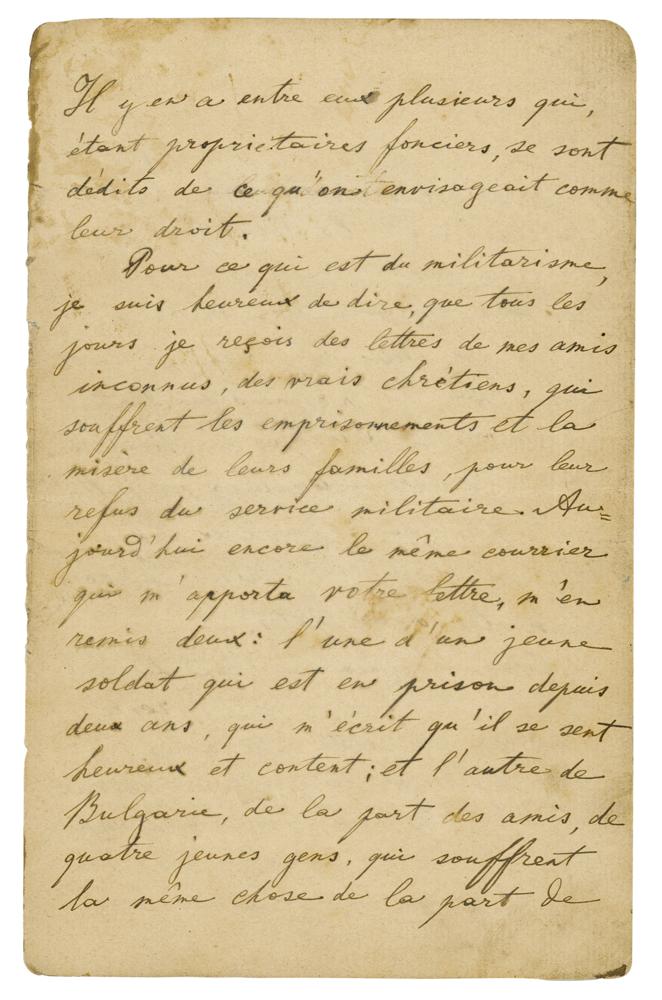 Il y en a entre eux plusieurs qui,
étant proprietaires fonciers, se sont
dédits de ce qu'on envisageait comme
leur droit.
Pour ce qui est du militarisme,
je suis heureux de dire, que tous les
jours je reçois des lettres de mes amis
inconnus, des vrais chrétiens, qui
souffrent les emprisonnements et la
misère de leurs familles, pour leur
refus du service militaire. Au=
jourd'hui encore le même courrier
qui m'apporta votre lettre, m'en
remis deux: l'une d'un jeune
soldat qui est en prison depuis
deux ans, qui m'écrit qu'il se sent
heureux et content; et l'autre de
Bulgarie, de la part des amis, de
quatre jeunes gens, qui souffrent
la même chose de la part de